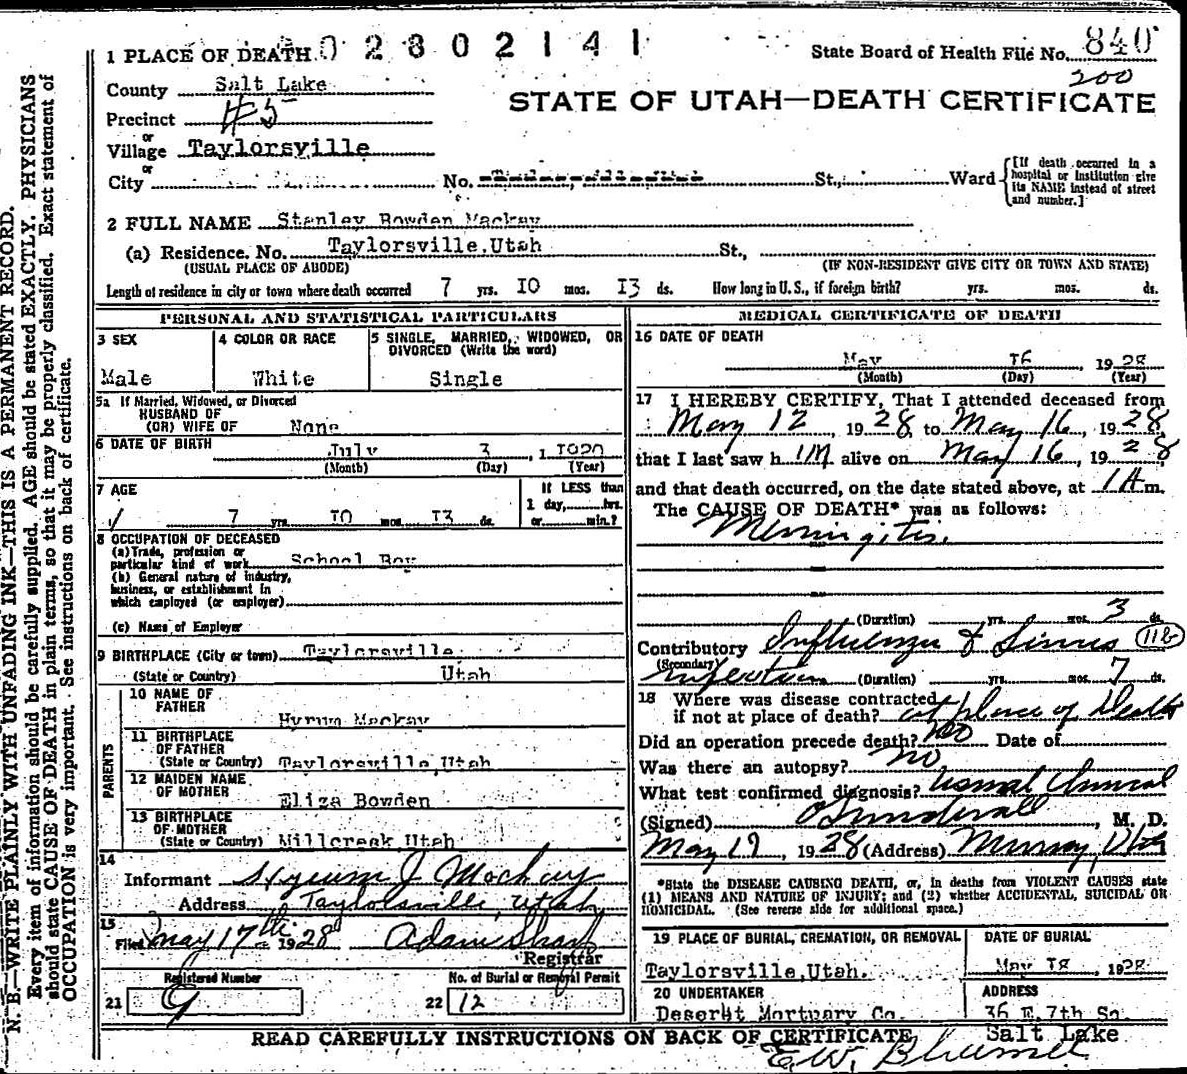 N. B.—WRITE PLAINLY WITH UNFADING INK—THIS IS A PERMANENT RECORD.
Every item of information should be carefully supplied. AGE should be stated EXACTLY. PHYSICIANS
should state CAUSE OF DEATH in plain terms, so that it may be properly classified. Exact statement of
OCCUPATION is very important. See instructions on back of certificate.
1 PLACE OF DEATH 0 2 8 0 2 1 4 1
State Board of Health File No. 840
200
County Salt Lake
STATE OF UTAH—DEATH CERTIFICATE
Precinct #5
or
Village Taylorsville
or
City No. St., Ward
[If death occurred in a
hospital or institution give
its NAME instead of street
and number.]
2 FULL NAME Stanley Bowden Mackay
(a) Residence. No. Taylorsville.Utah St.,
(USUAL PLACE OF ABODE) (IF NON-RESIDENT GIVE CITY OR TOWN AND STATE)
Length of residence in city or town where death occurred 7 yrs. IO mos. I3 ds. How long in U. S., if foreign birth? yrs. mos. ds.
PERSONAL AND STATISTICAL PARTICULARS
3 SEX
Male
4 COLOR OR RACE
White
5 SINGLE, MARRIED, WIDOWED, OR
DIVORCED (Write the word)
Single
5a If Married, Widowed, or Divorced
HUSBAND OF
(OR) WIFE OF None
6 DATE OF BIRTH July 3, 1 1920
(Month) (Day) (Year)
7 AGE
7 yrs. IO mos. I3 ds.
If LESS than
1 day, hrs.
or min.?
8 OCCUPATION OF DECEASED
(a) Trade, profession or
particular kind of work School Boy
(b) General nature of industry,
business, or establishment in
which employed (or employer)
(c) Name of Employer
9 BIRTHPLACE (City or town) Taylorsville
(State or Country) Utah
PARENTS
10 NAME OF
FATHER
Hyrum Mackay
11 BIRTHPLACE
OF FATHER
(State or Country) Taylorsville,Utah
12 MAIDEN NAME
OF MOTHER
Eliza Bowden
13 BIRTHPLACE
OF MOTHER
(State or Country) Millcreek Utah
14
Informant Hyrum J Mackay
Address Taylorsville, Utah
15
Filed May 17th 1928 Adam Sharp
Registrar
Registered Number
21 9
No. of Burial or Removal Permit
22 12
MEDICAL CERTIFICATE OF DEATH
16 DATE OF DEATH
May I6, 1928
(Month) (Day) (Year)
17 I HEREBY CERTIFY, That I attended deceased from
May 12, 1928, to May 16, 1928,
that I last saw him alive on May 16, 1928
and that death occurred, on the date stated above, at 1 A m.
The CAUSE OF DEATH* was as follows:
Menningitis.
(Duration) yrs. mos. 3 ds.
Contributory Influenza & Sinus 11b
(Secondary) Infection (Duration) yrs. mos. 7 ds.
18 Where was disease contracted
if not at place of death? at place of Death
Did an operation precede death? No Date of
Was there an autopsy? no
What test confirmed diagnosis? Usual Clinical
(Signed) M. D.
May 17, 1928 (Address) Murray, Utah
*State the DISEASE CAUSING DEATH, or, in deaths from VIOLENT CAUSES state
(1) MEANS AND NATURE OF INJURY; and (2) whether ACCIDENTAL, SUICIDAL OR
HOMICIDAL. (See reverse side for additional space.)
19 PLACE OF BURIAL, CREMATION, OR REMOVAL
Taylorsville,Utah.
DATE OF BURIAL
May I8, 1928
20 UNDERTAKER
Deseret Mortuary Co.
ADDRESS
36 E. 7th So.
Salt Lake
READ CAREFULLY INSTRUCTIONS ON BACK OF CERTIFICATE
E.W.